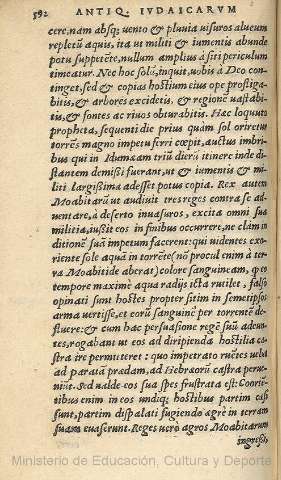 392 ANTIQ. IVDAICARVM
cere, nam absq; vento & pluvia visuros alueum
repletũ aquis, ita ut militi & iumentis abunde
potu suppetẽte, nullum amplius à siti periculum
timeatur. Nec hoc solũ, inquit, vobis à Deo con-
tinget, sed & copias hostium eius ope profliga-
bitis, & arbores excidetis, & regionẽ vastabi-
tis, & fontes ac riuos obturabitis. Hæc loquuto
propheta, sequenti die prius quàm sol oriretur
torrẽs magno impetu ferri cœpit, auctus imbri-
bus qui in Idumæam triũ dierũ itinere inde di-
stantem demissi fuerant, ut & iumentis & mi-
liti largissima adesset potus copia. Rex autem
Moabitarũ ut audiuit tres reges contra se ad-
uentare, à deserto inuasuros, excita omni sua
militia, iussit eos in finibus occurrere, ne clàm in
ditionẽ suã impetum facerent: qui videntes ex-
oriente sole aquã in torrẽte (nõ procul enim à ter-
ra Moabitide aberat) colore sanguineam, q eo
tempore maximè aqua radijs icta rutilet, falsò
opinati sunt hostes propter sitim in semetipsos
arma vertisse, et eorũ sanguinẽ per torrentẽ de-
fluere: & cum hac persuasione regẽ suũ adeun-
tes, rogabant ut eos ad diripienda hostilia ca-
stra ire permitteret: quo imperato ruẽtes velut
ad paratã prædam, ad Hebræorũ castra perue-
niũt. Sed valde eos sua spes frustrata est: Coorien-
tibus enim in eos undiq; hostibus partim cæsi
sunt, partim dispalati fugiendo ægrè in terram
suam euaserunt. Reges verò agros Moabitarum
ingressi,
Ministerio de Educación, Cultura y Deporte